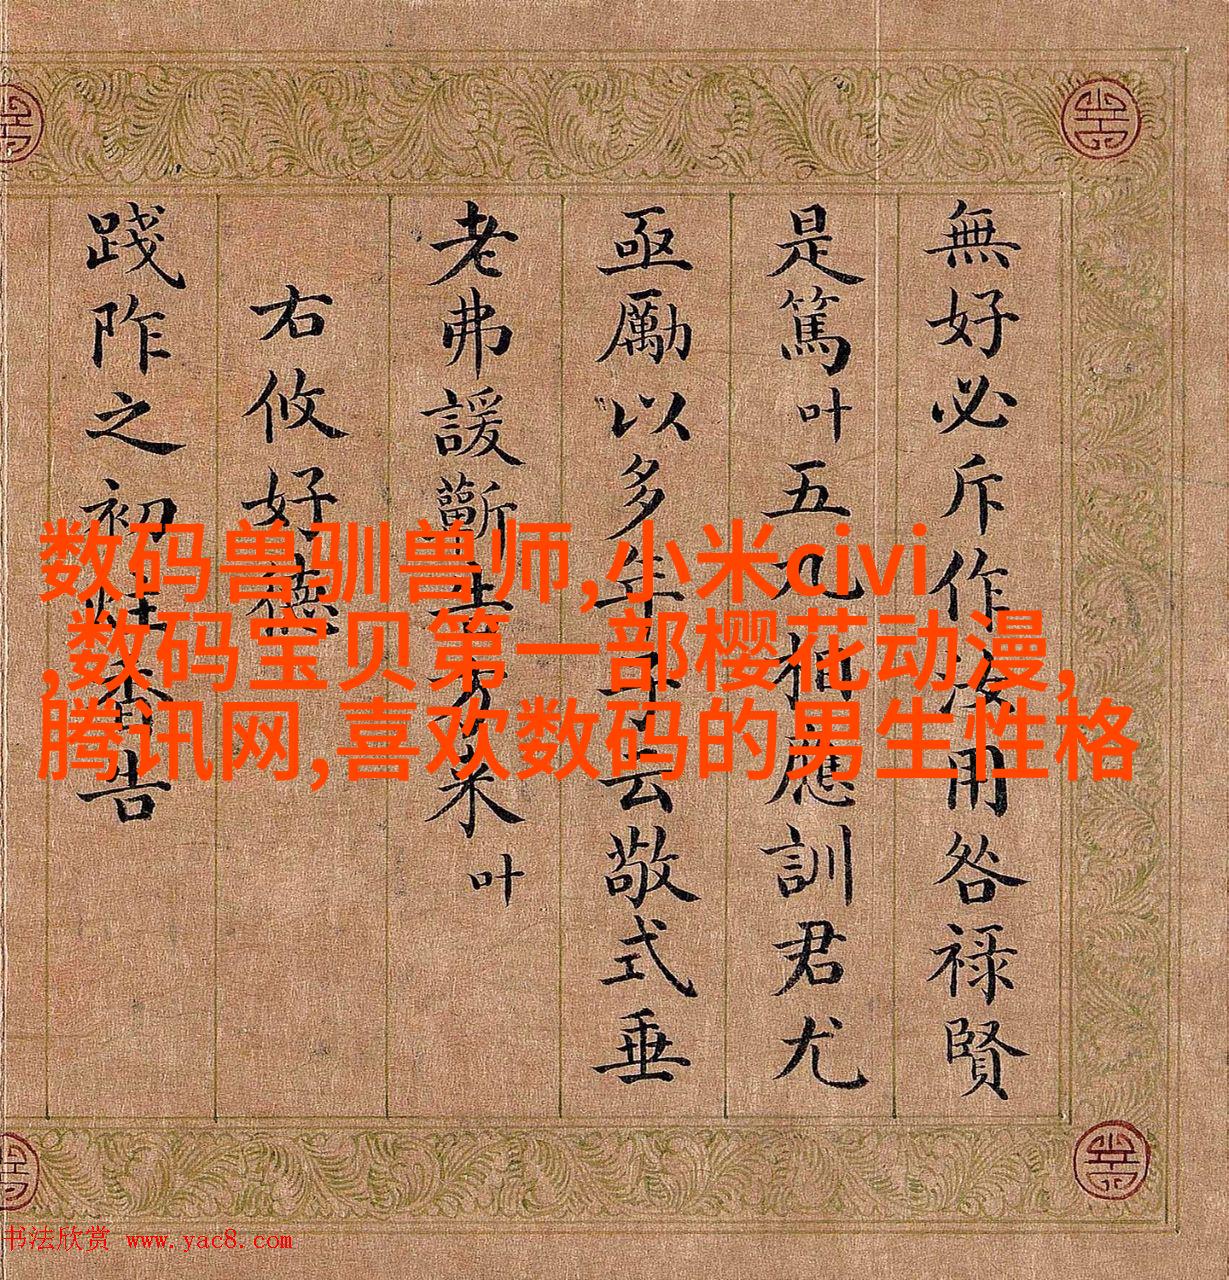 無好必斥作汝用咎祿賢
是篤叶五九應訓君尤
亟勵以多年云敬式垂
老弗諼斷來叶
右攸好德
踐阼之初炷香告
数码兽驯兽师,小米civi
,数码宝贝第一部樱花动漫,
腾讯网,喜欢数码的男生性格
书法欣赏 www.yac8.com